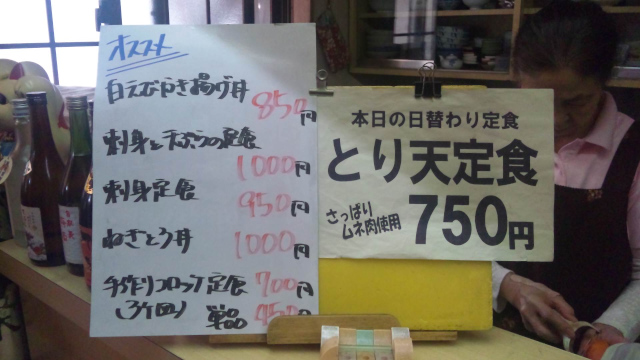 オススメ
白えびかき揚げ丼 850円
刺身と天ぷらの定食
1000円
刺身定食 950円
ねぎとろ丼 1000円
手作りコロッケ定食 700円
(3ケ図) 単品 450円
本日の日替わり定食
とり天定食
さっぱり
ムネ肉使用
750円